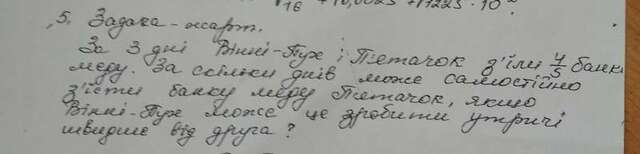 16 + 10,0025 + 1225 · 10
5. Задача - жарт.
За 3 дні Вінні-Пух і П'ятачок з'їли 4/5 банки
меду. За скільки днів може самостійно
з'їсти банку меду П'ятачок, якщо
Вінні-Пух може це зробити утричі
швидше від друга?